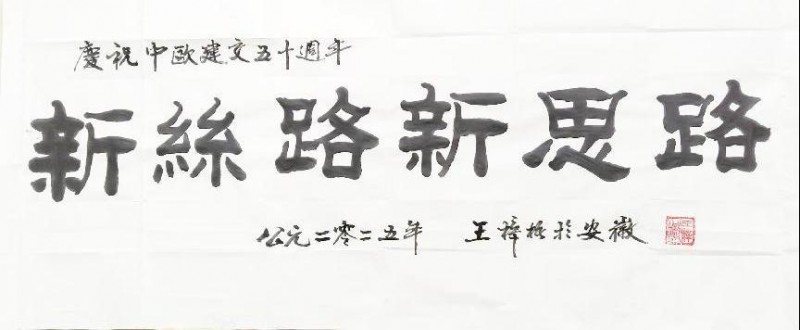 慶祝中歐建交五十週年
新絲路新思路
公元二零二五年 王於安徽